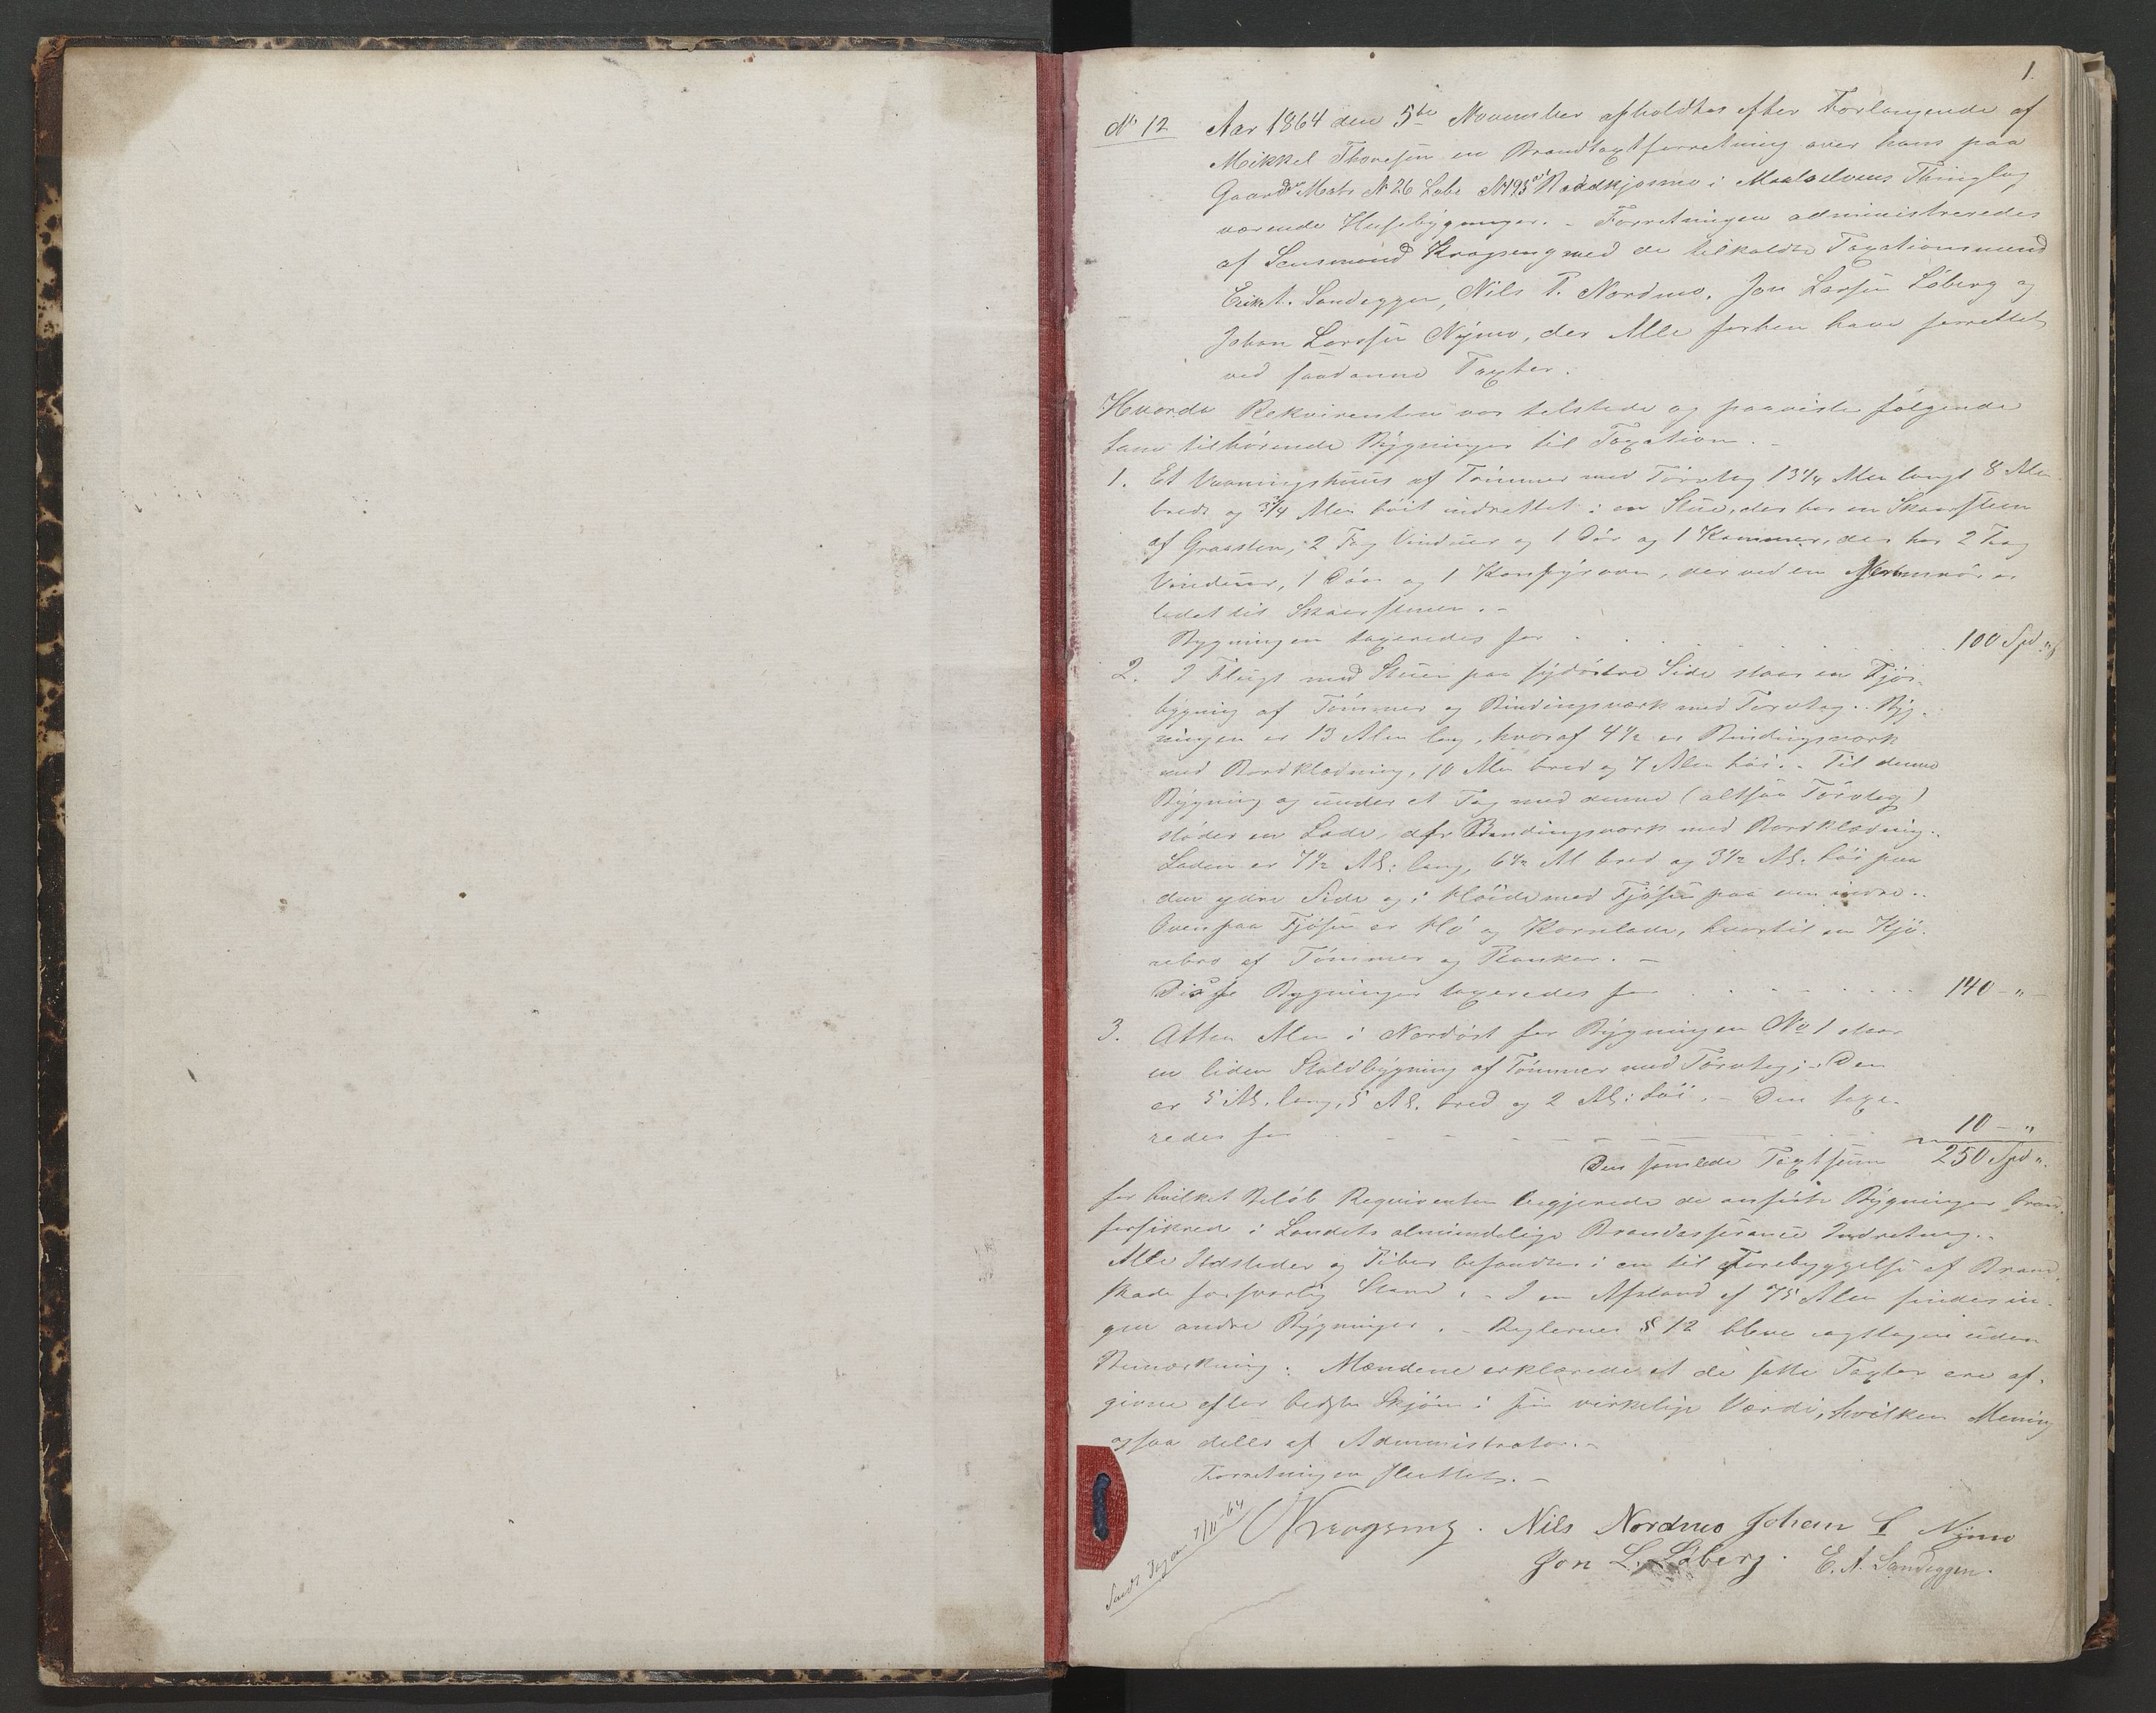 1.
No 12 Aar 1864 den 5te November afholdtes efter Forlangende af
Mikkel Thoresen en Brandtaxtforretning over hans paa
Gaarden Matr N 26 Løbe N 195 i Maalselvens Thinglag
værende Husebygninger. - Forretningen administreredes
af Lensmand Kragseng med de tilkaldte Taxationsmænd
Erik A. Sandeggen, Nils P. Nordmo, Jon Larsen Løberg og
Johan Larssen Nymo, der Alle forhen have forrettet
ved saadanne Taxter.
Hvorda Rekvirenten var tilstede og paaviste følgende
ham tilhørende Bygninger til Taxation. -
1. Et Vaaningshuus af Tømmer med Törvtag 13 1/4 Alen langt 8 Alen
bredt og 3/4 Alen höit indrettet: en Stue, der har en Skorsteen
af Graasten, 2 Fag Vinduer og 1 Dör og 1 Kammer, der har 2 Fag
Vinduer, 1 Dör og 1 Komfyrovn, der ved en Jernrör er
ledet til Skorstenen. -
Bygningen taxeredes for . . . . 100 Spd "
2. I Flugt med Stuen paa sydöstre Side staar en Fjös-
bygning af Tömmer og Bindingsværk med Torvtag. Byg-
ningen er 13 Alen lang, hvoraf 4 1/2 er Bindingsværk
med Bordklædning, 10 Alen bred og 7 Alen höi. - Til denne
Bygning og under et Tag med denne (altsaa Törvtag)
støder en Lade, af Bindingsværk med Bordklædning.
Laden er 7 1/2 Al: lang, 6 1/2 Al bred og 3 1/2 Al. höi paa
den ydre Side og i Høide med Fjösen paa den indre. -
Ovenpaa Fjösen er Hö og Kornlade, hvortil en Kjö-
rebro af Tömmer og Planker. -
Disse Bygninger taxeredes for . . . . 140 - "
3. Atten Alen i Nordöst for Bygningen No 1 staar
en liden Staldbygning af Tömmer med Törvtag; - Den
er 5 Al. lang, 5 Al. bred og 2 Al: höi. - Den taxe-
redes for - - - - 10 - "
Den samlede Taxtsum 250 Spd ".
for hvilket Beløb Reqvirenten begjerede de anførte Bygninger brand-
forsikrede i Landets almindelige Brandassurance Indretning. -
Alle Ildsteder og Piber befandtes i en til Forebyggelse af Brand-
skade forsvarlig Stand. - I en Afstand af 75 Alen findes in-
gen andre Bygninger. - Reglernes § 12 bleve iagttagne uden
Bemærkning. Mændene erklærede at de satte Taxter ere af-
givne efter bedste Skjön i sin virkelige Værdi, hvilken Mening
ogsaa deltes af Administrator. -
Forretningen sluttet. -
Kragseng. Nils Nordmo Johan L Nymo
Jon L. Løberg. E. A. Sandeggen.
7/11-64